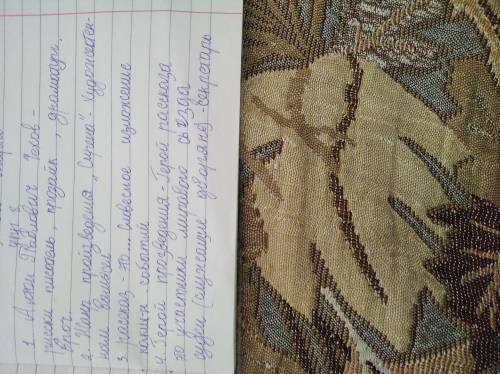 1. Антон Павлович Чехов -
руски писатель, прозаик, драматург,
врач.
2. Жанр произведения "Сирена" - художествен-
3. рассказ - это... словесное изложение
каких событий
4. Герой произведения - Герой рассказа
участники мирового съезда
судьи (служащие дворяне) - секретарь